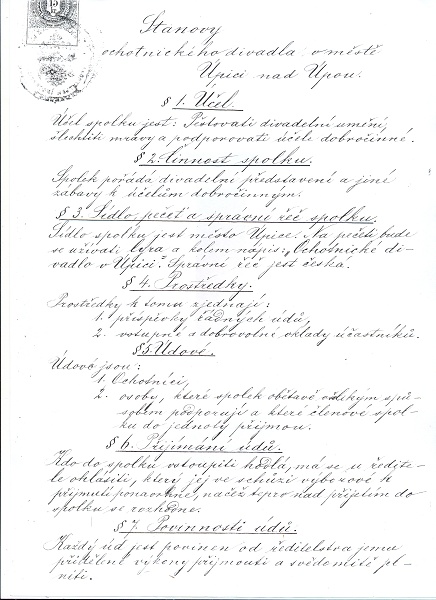 Stanovy
ochotnického divadla v městě
Úpici nad Úpou.
§ 1. Účel.
Účel spolku jest: Pěstovati divadelní umění,
šlechtiti mravy a podporovati účele dobročinné.
§ 2. Činnost spolku.
Spolek pořádá divadelní představení a jiné
zábavy k účelům dobročinným.
§ 3. Sídlo, pečeť a správní řeč spolku.
Sídlo spolku jest město Úpice. Na pečeti bude
se užívati lyra a kolem nápis: „Ochotnické di-
vadlo v Úpici“. Správní řeč jest česká.
§ 4. Prostředky.
Prostředky k tomu zjednají:
1. příspěvky řádných údů,
2. vstupné a dobrovolní oklady účastníků.
§ 5. Údové.
Údové jsou:
1. Ochotníci,
2. osoby, které spolek obětavě všelikým způ-
sobem podporují a které členové spol-
ku do jednoty přijmou.
§ 6. Přijímání údů.
Kdo do spolku vstoupiti hodlá, má se u ředite-
le ohlásiti, který jej ve schůzi výborové k
přijmutí ponavrhne, načež teprv nad přijetím do
spolku se rozhodne.
§ 7. Povinnosti údů.
Každý úd jest povinen od ředitelstva jemu
přidělené výkony přijmouti a svědomitě pl-
niti.